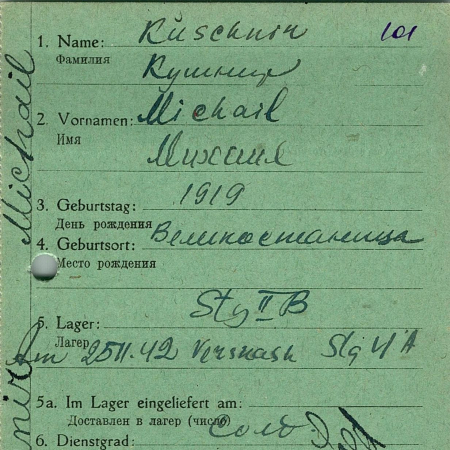 1. Name: Kuschnir 101
Фамилия
Кушнир
2. Vornamen: Michail
Имя
Михаил
3. Geburtstag: 1919
День рождения
4. Geburtsort: Великостаница
Место рождения
Stg II B
5. Lager:
Лагерь
Am 25 II. 42 Stg VI A
5a. Im Lager eingeliefert am:
Доставлен в лагерь (число)
6. Dienstgrad: солд
Michail